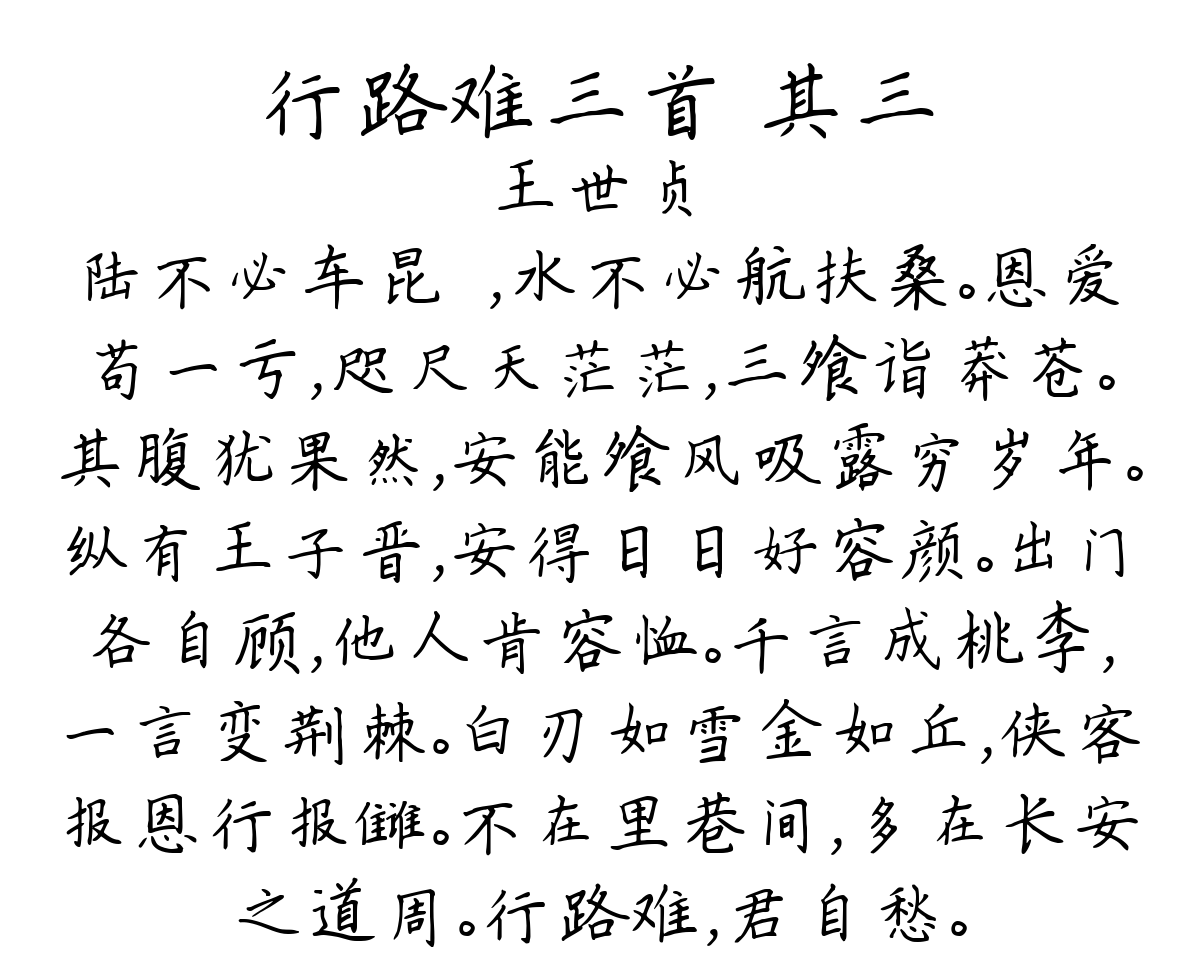 行路难三首 其三
王世贞
陆不必车昆 ,水不必航扶桑。恩爱
苟一亏,咫尺天茫茫,三飧诣莽苍。
其腹犹果然,安能飧风吸露穷岁年。
纵有王子晋,安得日日好容颜。出门
各自顾,他人肯容恤。千言成桃李,
一言变荆棘。白刃如雪金如丘,侠客
报恩行报雠。不在里巷间,多在长安
之道周。行路难,君自愁。